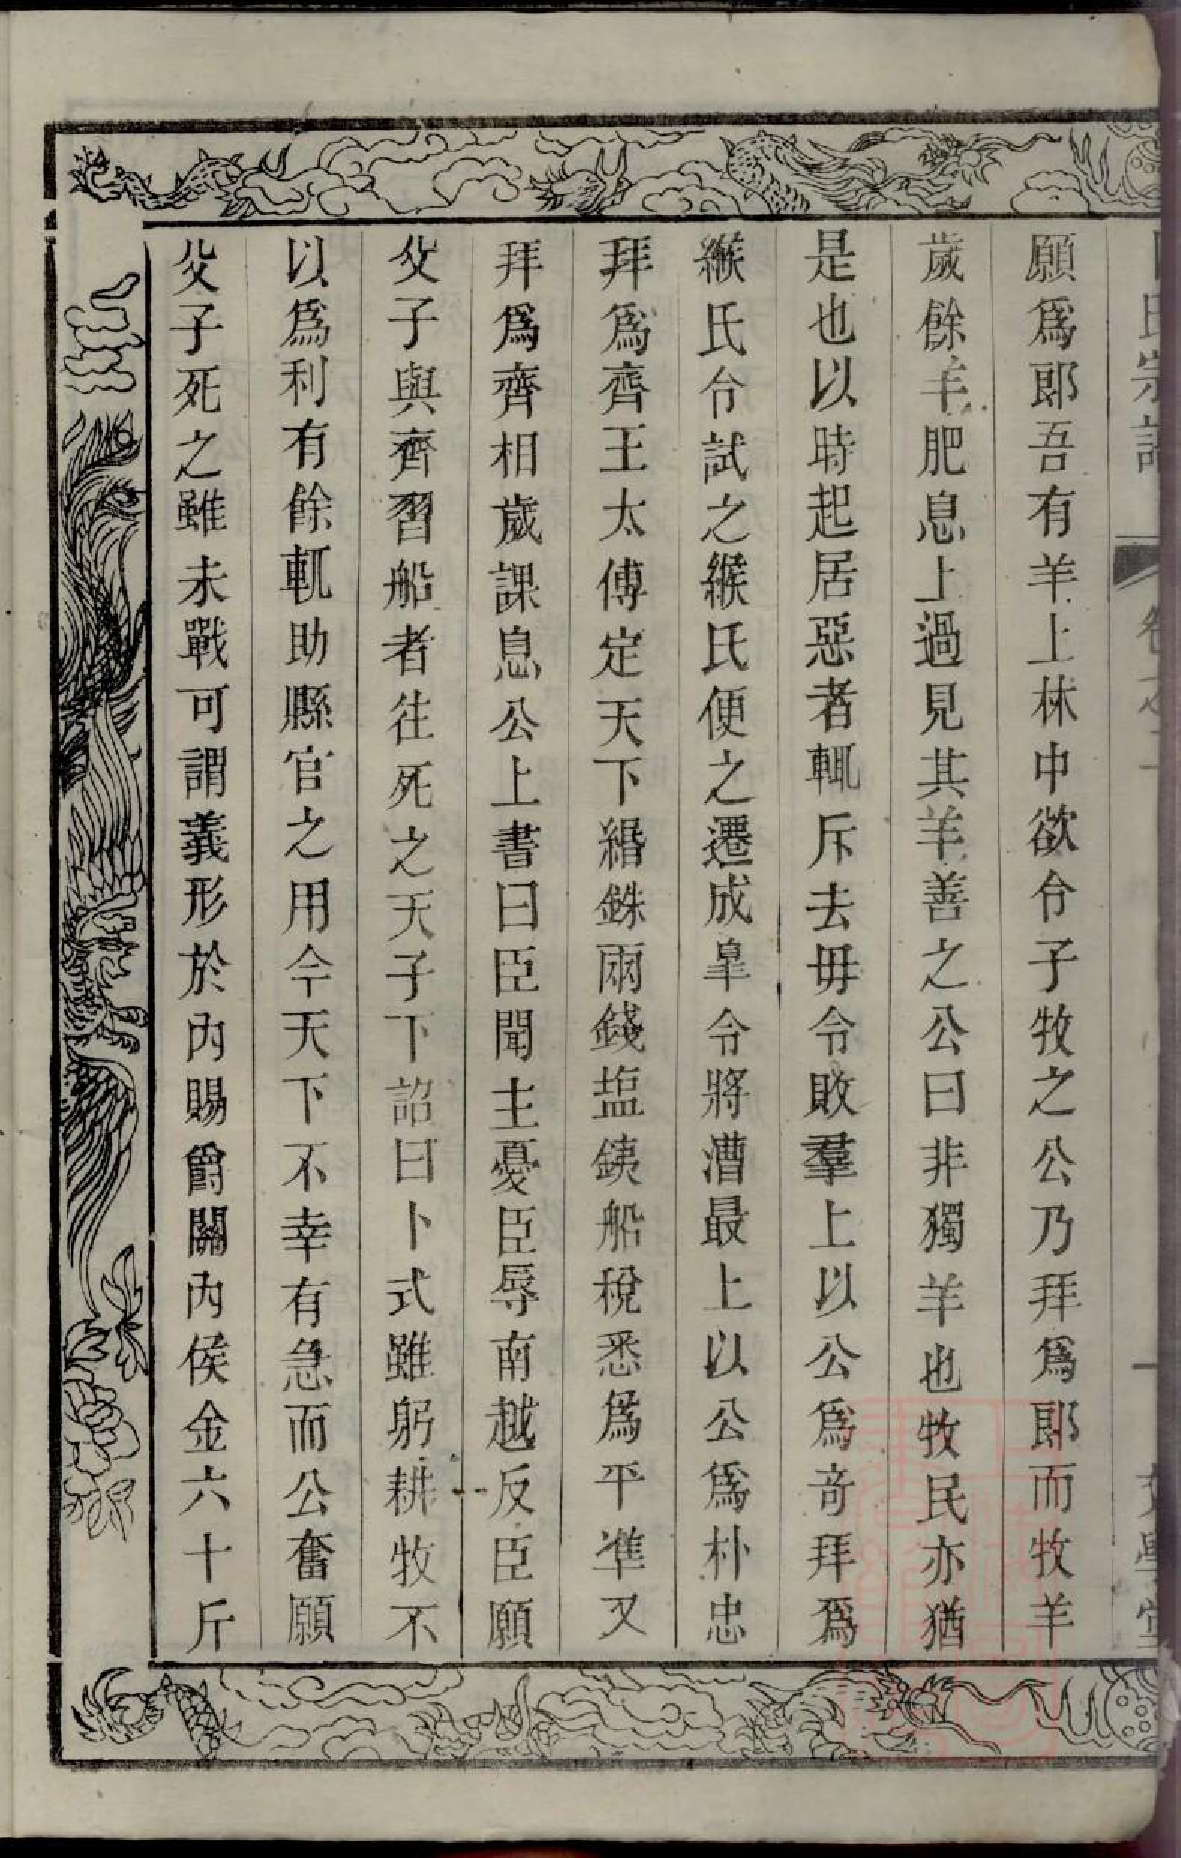 願爲郎吾有羊上林中欲令子牧之公乃拜爲郎而牧羊
歲餘羊肥息上過見其羊善之公曰非獨羊也牧民亦猶
是也以時起居惡者輒斥去毋令敗羣上以公爲竒拜爲
緱氏令試之緱氏便之遷成皐令將漕最上以公爲朴忠
拜爲齊王太傅定天下緡銖兩錢塩銕船稅悉爲平準又
拜爲齊相歲課息公上書曰臣聞主憂臣辱南越反臣願
父子與齊習船者往死之天子下詔曰卜式雖躬耕牧不
以爲利有餘輒助縣官之用今天下不幸有急而公奮願
父子死之雖未戰可謂義形於內賜爵關內侯金六十斤